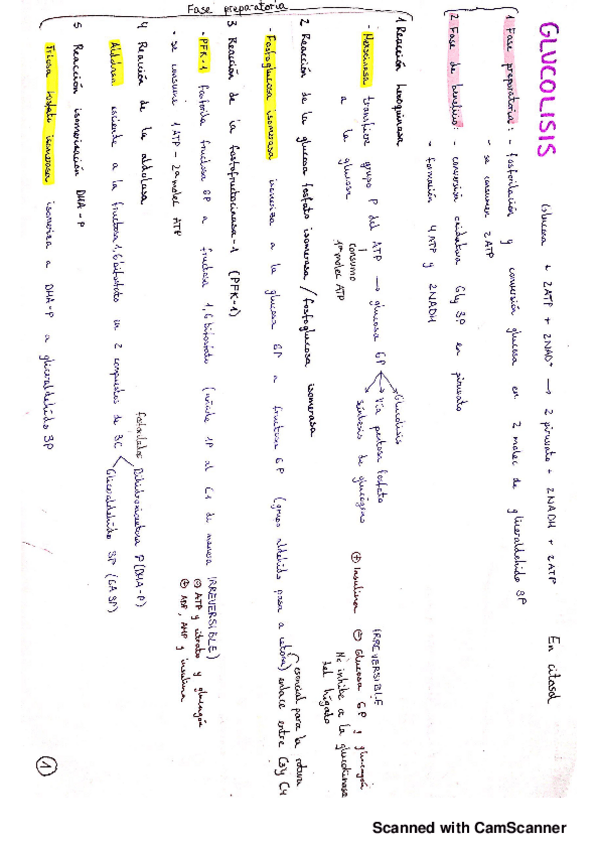 GLUCOLISIS
Glucosa + 2ATP + 2NAD⁺ → 2 piruvato + 2NADH + 2ATP
En citosol
1 Fase preparatoria: - fosforilación y conversión glucosa en 2 molec de gliceraldehído 3P
- se consumen 2ATP
2 Fase de beneficio: - conversión oxidativa Gly 3P en piruvato
- formación 4ATP y 2NADH
Fase preparatoria
1 Reacción hexoquinasa
- Hexocinasa transfiere grupo P del ATP → glucosa 6P
a la glucosa
consumo
1ª molec ATP
Glucolisis
Vía pentosa fosfato
Síntesis de glucógeno
IRREVERSIBLE
⊕ Insulina ⊖ Glucosa 6P y glucagón
No inhibe a la glucokinasa
del hígado
2 Reacción de la glucosa fosfato isomerasa / fosfoglucosa isomerasa
- Fosfoglucosa isomerasa isomeriza a la glucosa 6P a fructosa 6P (grupo aldehído pasa a cetona)
esencial para la rotura
enlace entre C3 y C4
3 Reacción de la fosfofructocinasa-1 (PFK-1)
- PFK-1 fosforila fructosa 6P a fructosa 1,6 bifosfato (añade 1P al C1 de manera IRREVERSIBLE)
- se consume 1ATP - 2ª molec ATP
⊖ ATP y citrato y glucagón
⊕ ADP, AMP y insulina
4 Reacción de la aldolasa
Aldolasa esciende a la fructosa 1,6 bifosfato en 2 compuestos de 3C
Dihidroxiacetona P (DHA-P)
Gliceraldehído 3P (GA3P)
5 Reacción isomerización DHA-P
Triosa fosfato isomerasa isomeriza a DHA-P a gliceraldehído 3P
1
Scanned with CamScanner